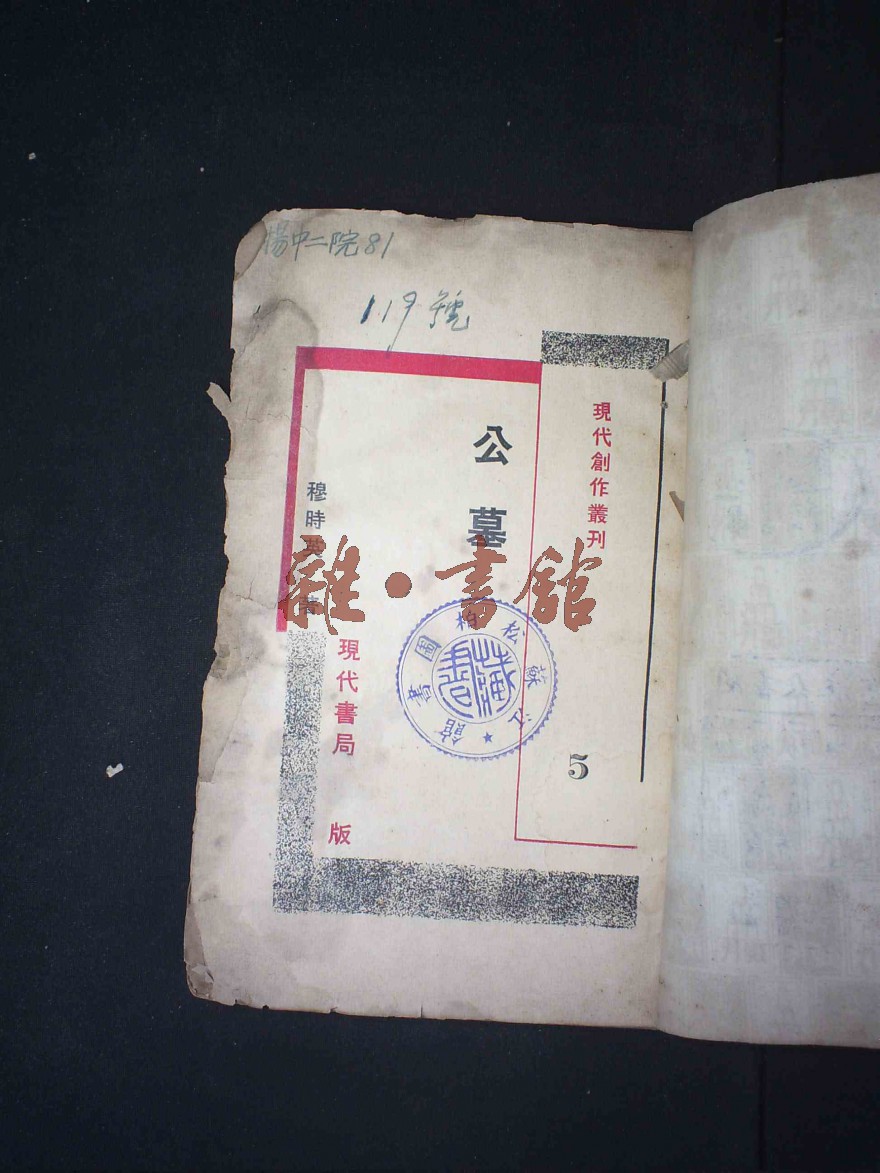 揚中二院81
119號
現代創作叢刊
5
公墓
穆時英 著
現代書局 版
雜·書館
江蘇松柏圖書館